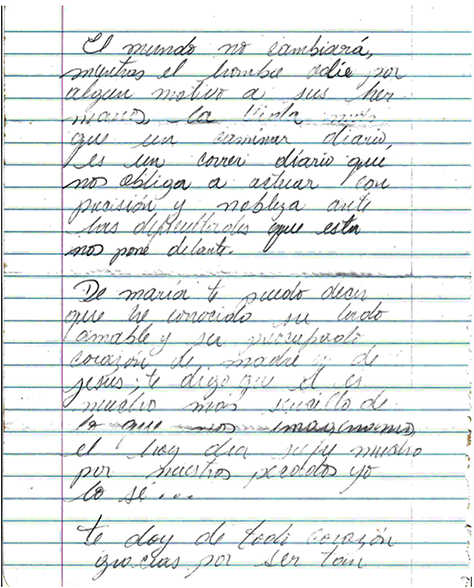 El mundo no cambiará,
mientras el hombre odie por
algun motivo a sus her
manos la vida mas
que un caminar diario,
es un correr diario que
nos obliga a actuar con
precisión y nobleza ante
las dificultades que esta
nos pone delante.
De maría te puedo decir
que he conocido su lado
amable y su preocupado
corazón de madre y de
jesus; te digo que el es
mucho más sencillo de
lo que nos imaginamos,
el hoy dia sufre mucho
por nuestros pecados yo
lo se...
te doy de todo corazón
gracias por ser tan